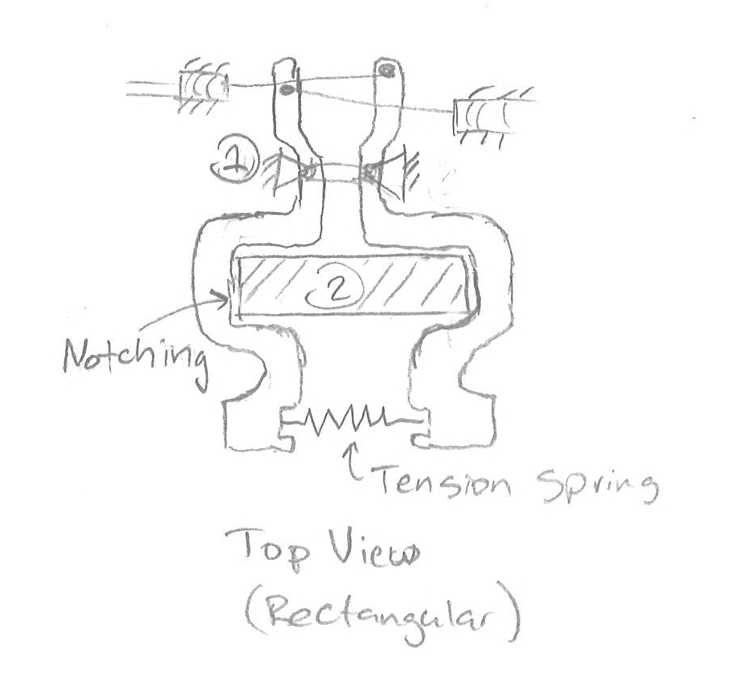 1
2
Notching
Tension Spring
Top View
(Rectangular)